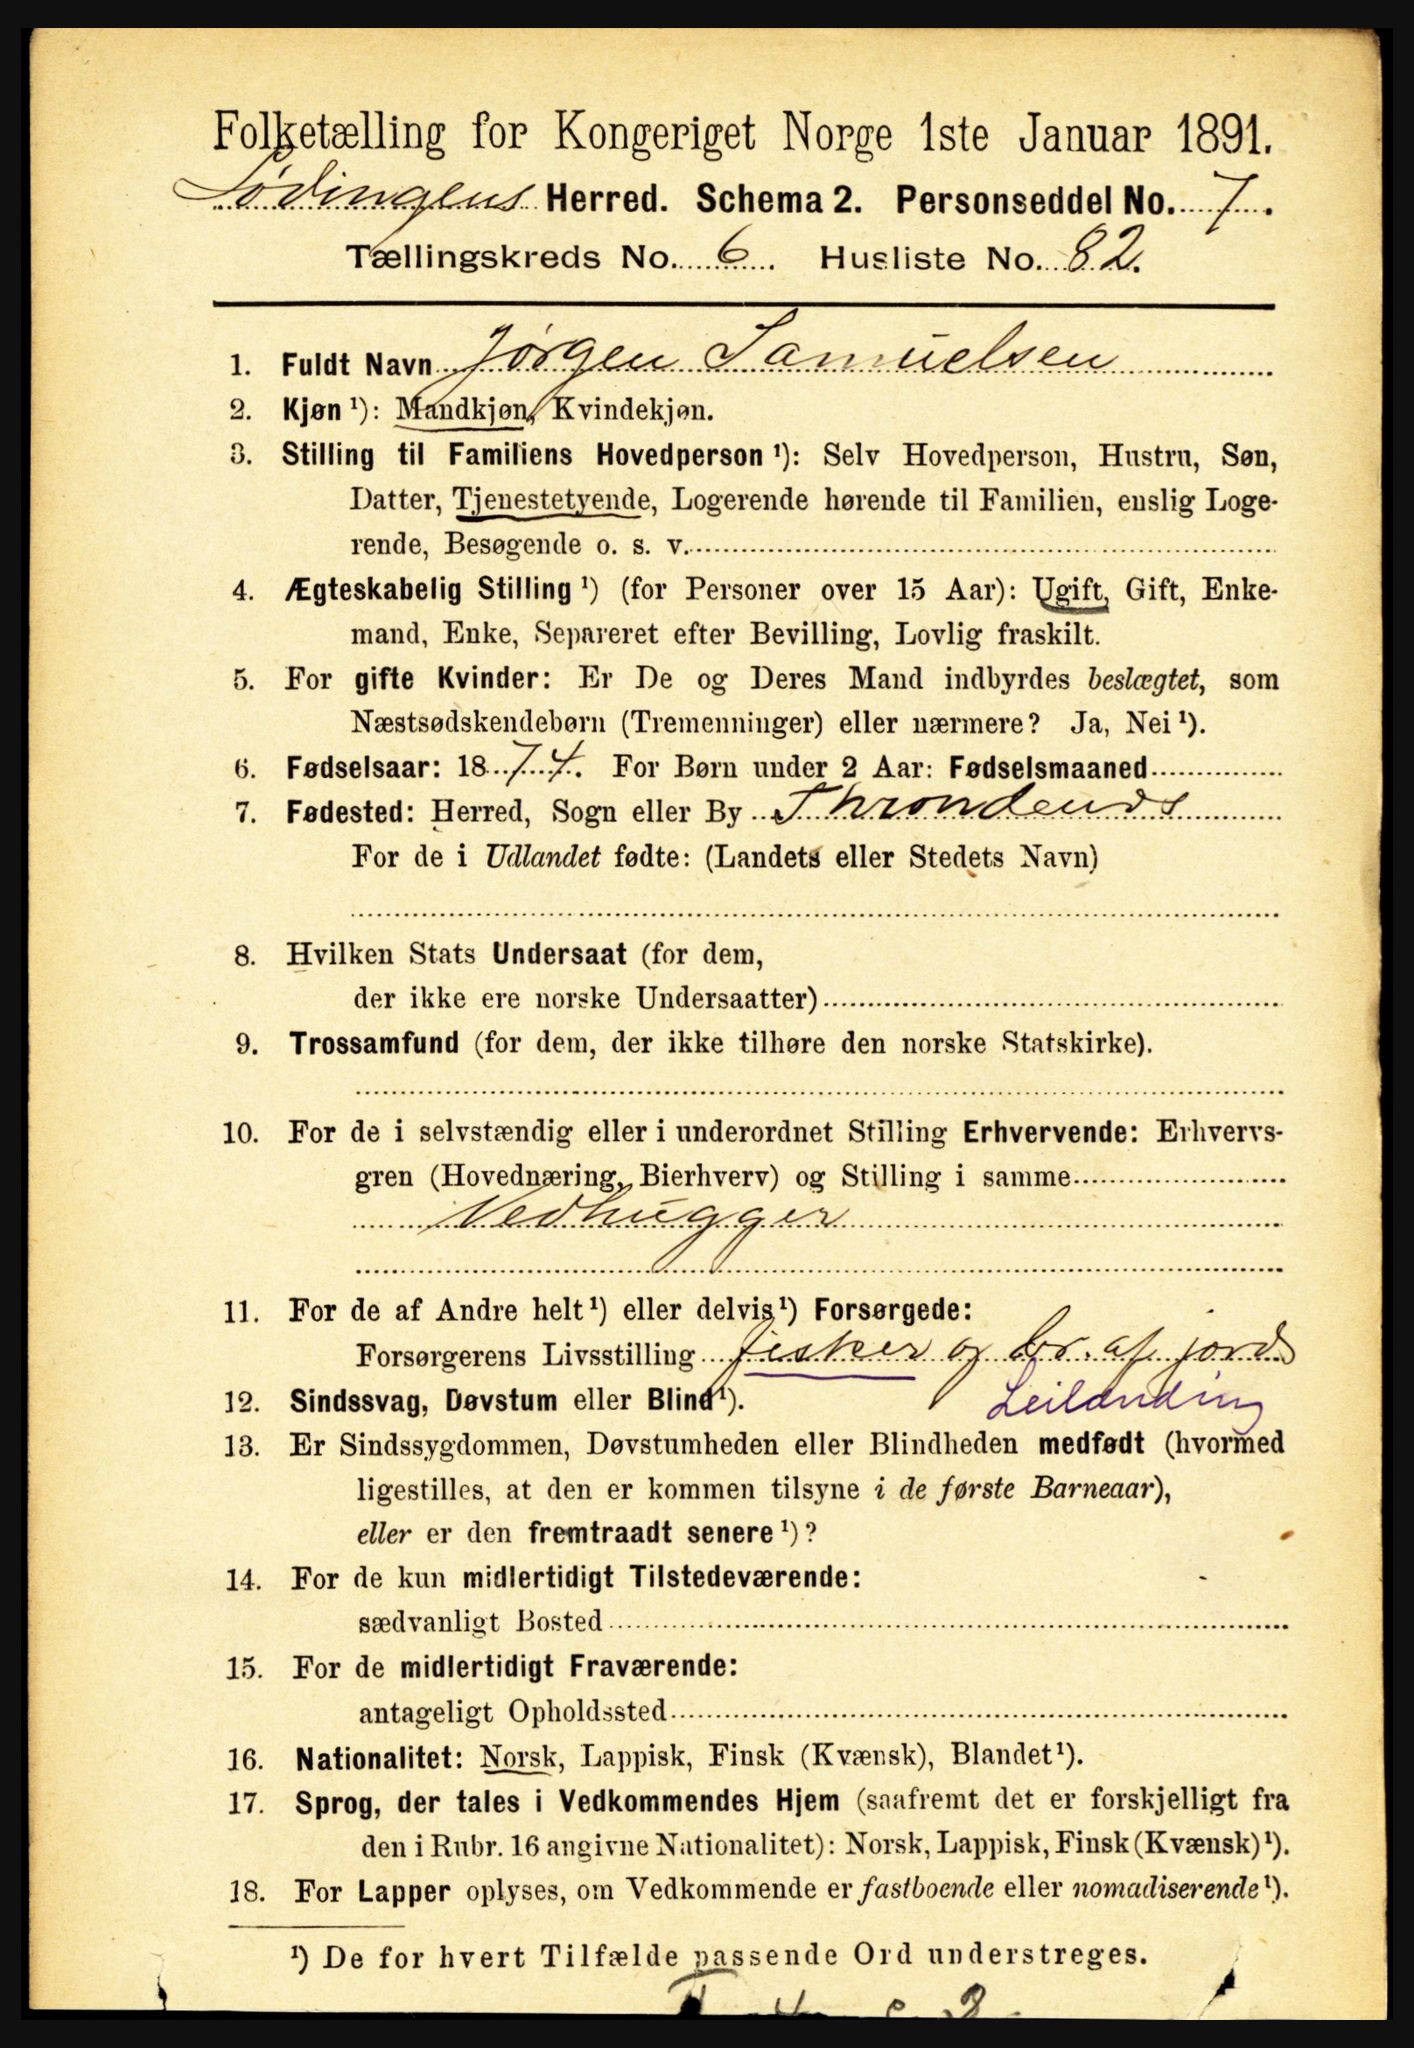 Folketælling for Kongeriget Norge 1ste Januar 1891.
Lødingens Herred. Schema 2. Personseddel No. 7.
Tællingskreds No. 6. Husliste No. 82.
1. Fuldt Navn Jørgen Samuelsen
2. Kjøn ¹): Mandkjøn, Kvindekjøn.
3. Stilling til Familiens Hovedperson ¹): Selv Hovedperson, Hustru, Søn,
Datter, Tjenestetyende, Logerende hørende til Familien, enslig Loge-
rende, Besøgende o. s. v.
4. Ægteskabelig Stilling ¹) (for Personer over 15 Aar): Ugift, Gift, Enke-
mand, Enke, Separeret efter Bevilling, Lovlig fraskilt.
5. For gifte Kvinder: Er De og Deres Mand indbyrdes beslægtet, som
Næstsødskendebørn (Tremenninger) eller nærmere? Ja, Nei ¹).
6. Fødselsaar: 1874. For Børn under 2 Aar: Fødselsmaaned
7. Fødested: Herred, Sogn eller By Throndenes
For de i Udlandet fødte: (Landets eller Stedets Navn)
8. Hvilken Stats Undersaat (for dem,
der ikke ere norske Undersaatter)
9. Trossamfund (for dem, der ikke tilhøre den norske Statskirke).
10. For de i selvstændig eller i underordnet Stilling Erhvervende: Erhvervs-
gren (Hovednæring, Bierhverv) og Stilling i samme
Vedhugger
11. For de af Andre helt ¹) eller delvis ¹) Forsørgede:
Forsørgerens Livsstilling fisker og br. af jord
12. Sindssvag, Døvstum eller Blind ¹). Leilænding
13. Er Sindssygdommen, Døvstumheden eller Blindheden medfødt (hvormed
ligestilles, at den er kommen tilsyne i de første Barneaar),
eller er den fremtraadt senere ¹)?
14. For de kun midlertidigt Tilstedeværende:
sædvanligt Bosted
15. For de midlertidigt Fraværende:
antageligt Opholdssted
16. Nationalitet: Norsk, Lappisk, Finsk (Kvænsk), Blandet ¹).
17. Sprog, der tales i Vedkommendes Hjem (saafremt det er forskjelligt fra
den i Rubr. 16 angivne Nationalitet): Norsk, Lappisk, Finsk (Kvænsk) ¹).
18. For Lapper oplyses, om Vedkommende er fastboende eller nomadiserende ¹).
¹) De for hvert Tilfælde passende Ord understreges.